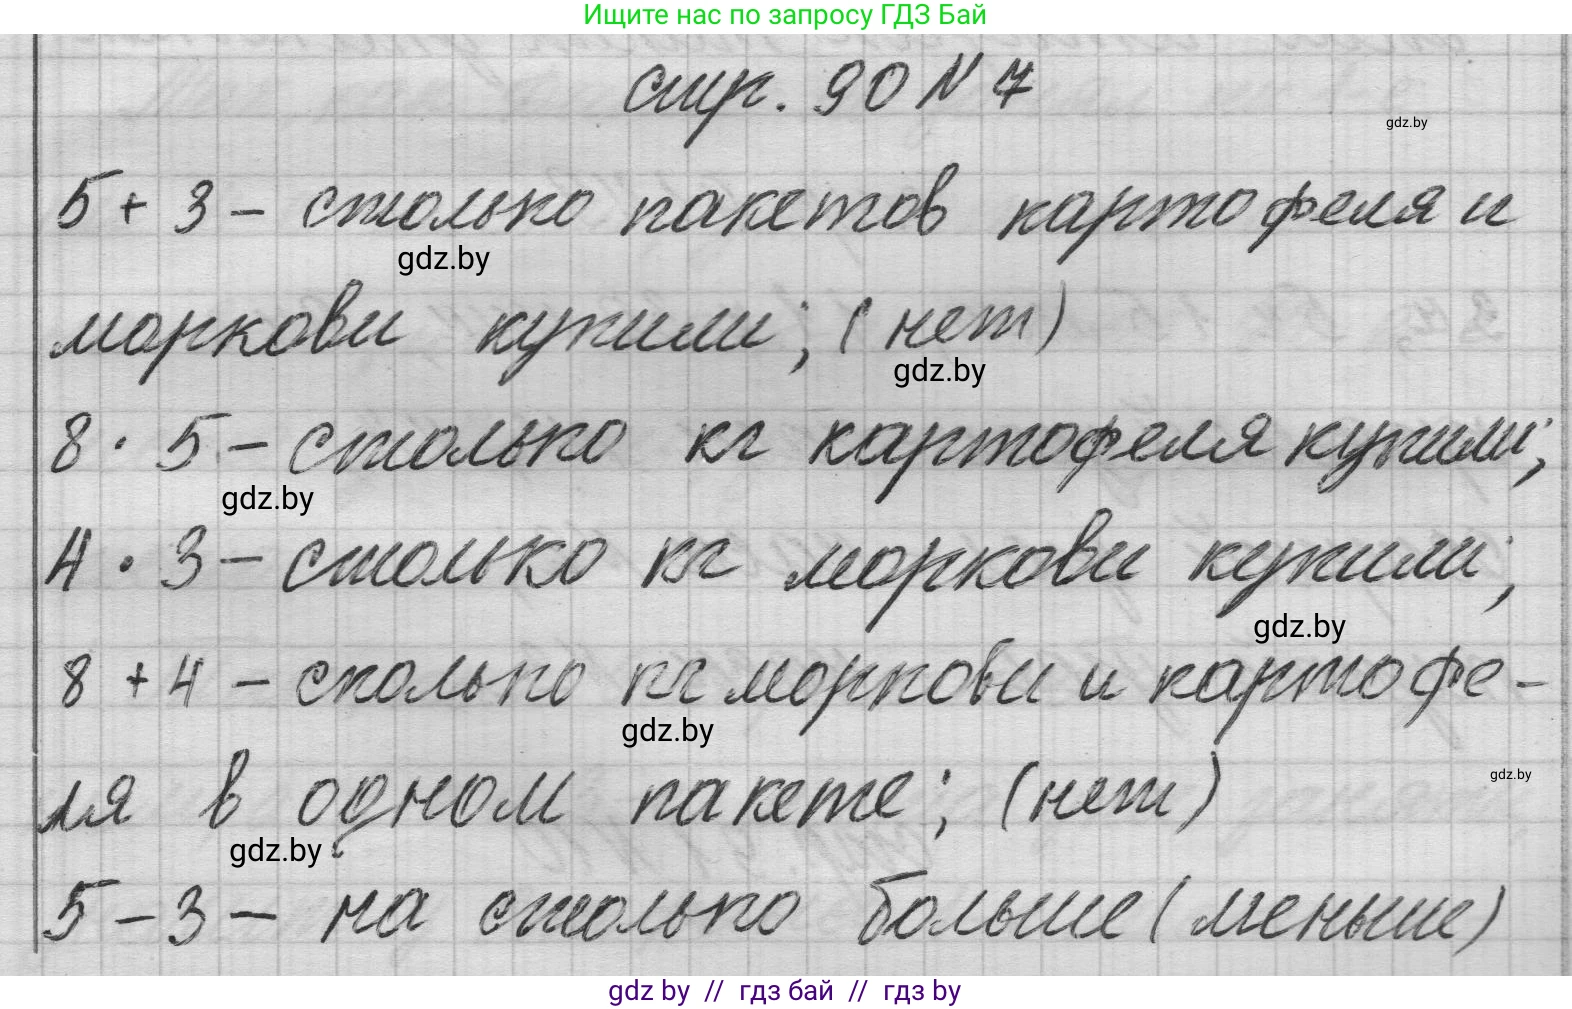 Ищите нас по запросу ГДЗ Бай
стр. 90 N 7
gdz.by
5 + 3 - столько пакетов картофеля и
gdz.by
моркови купили; (нет)
gdz.by
8 · 5 - столько кг картофеля купили;
gdz.by
4 · 3 - столько кг моркови купили;
gdz.by
8 + 4 - сколько кг моркови и картофе-
gdz.by
ля в одном пакете; (нет)
gdz.by
gdz.by
5 - 3 - на столько больше (меньше)
gdz by // гдз бай // гдз by